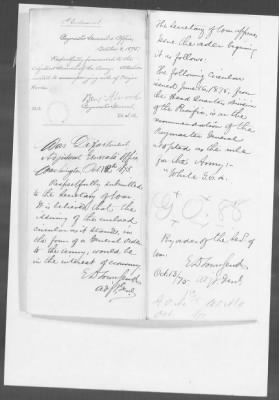 1st Indorsement
Paymaster General's Office
October 8, 1875
Respectfully forwarded to the
Adjutant General of the Army. Attention
invited to accompanying
Paymaster General
U.S.A.
War Department
Adjutant General's Office
Washington, Oct 1875
Respectfully submitted
to the Secretary of War
It is believed that the
issuing of the enclosed
circular as it stands, in
the form of a General Order
to the Army, would be
in the interest of economy
E D Townsend
Adjt. Genl.
The Secretary of War approves
Issue the order beginning
it as follows:
The following circular
issued June 26, 1875, from
the Head Quarters Division
of the Pacific, is on the
recommendation of the
Paymaster General
adopted as the rule
for the Army:-
"White G.O.s.
By order of the Sec. of
War:
E D Townsend
Oct 13/75 Adjt. Genl.